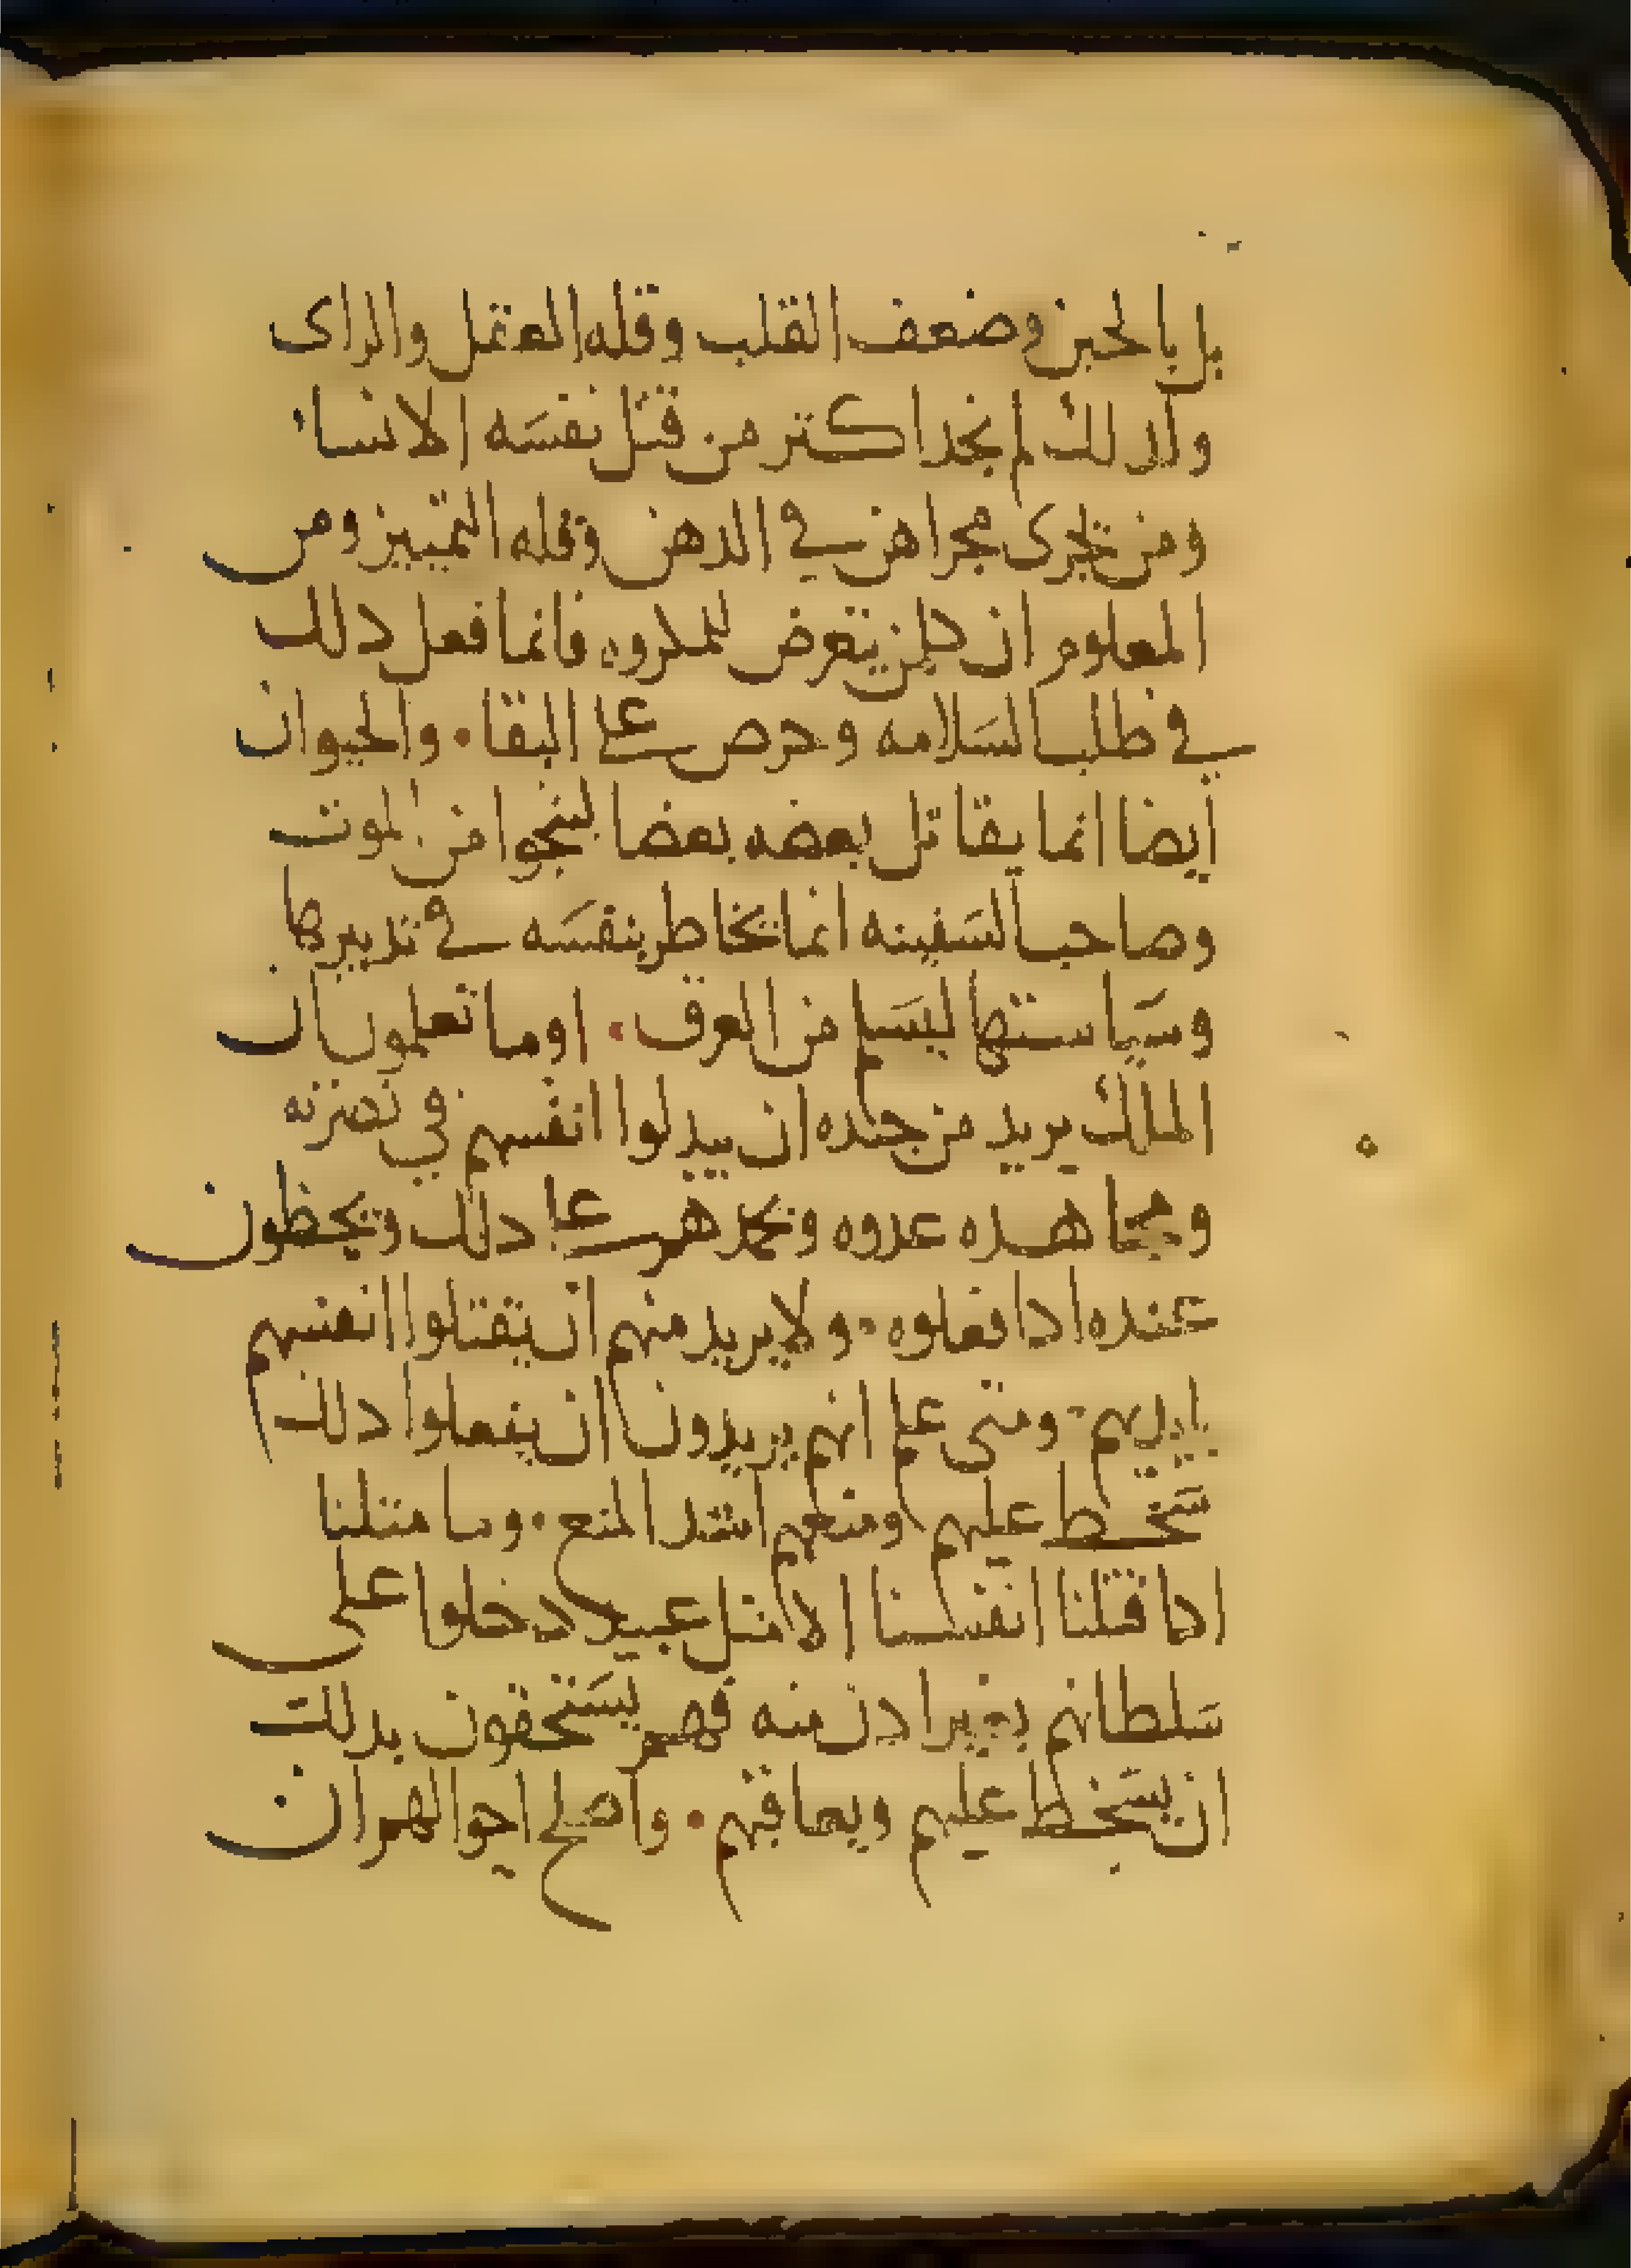 بل بالجبن وضعف القلب وقله العقل والراى
ولدلك لم نجد اكتر من قتل نفسه الا النسا
ومن يجرى مجراهن في الدهن وقله التمييز ومن
المعلوم ان كلمن يتعرض للمكروه فانما فعل دلك
في طلب السلامه وحرص على البقا. والحيوان
ايضا انما يقاتل بعضه بعضا لينجوا من الموت
وصاحب السفينه انما يخاطر بنفسه في تدبيرها
وسياستها ليسلم من الغرق. اوما تعلمون ان
الملك يريد من جنده ان يبدلوا انفسهم في نصرته
ومجاهده عدوه ويحمدهم على دلك ويحظون
عنده ادا فعلوه. ولا يريد منهم ان يقتلوا انفسهم
بايديهم. ومتى علم انهم يريدون ان يفعلوا دلك
سخط عليهم ومنعهم اشد المنع. وما مثلنا
ادا قتلنا انفسنا الا مثل عبيد دخلوا على
سلطانهم بغير ادن منه فهم يستحقون بدلك
ان يسخط عليهم ويعاقبهم. واصلح احوالهم ان